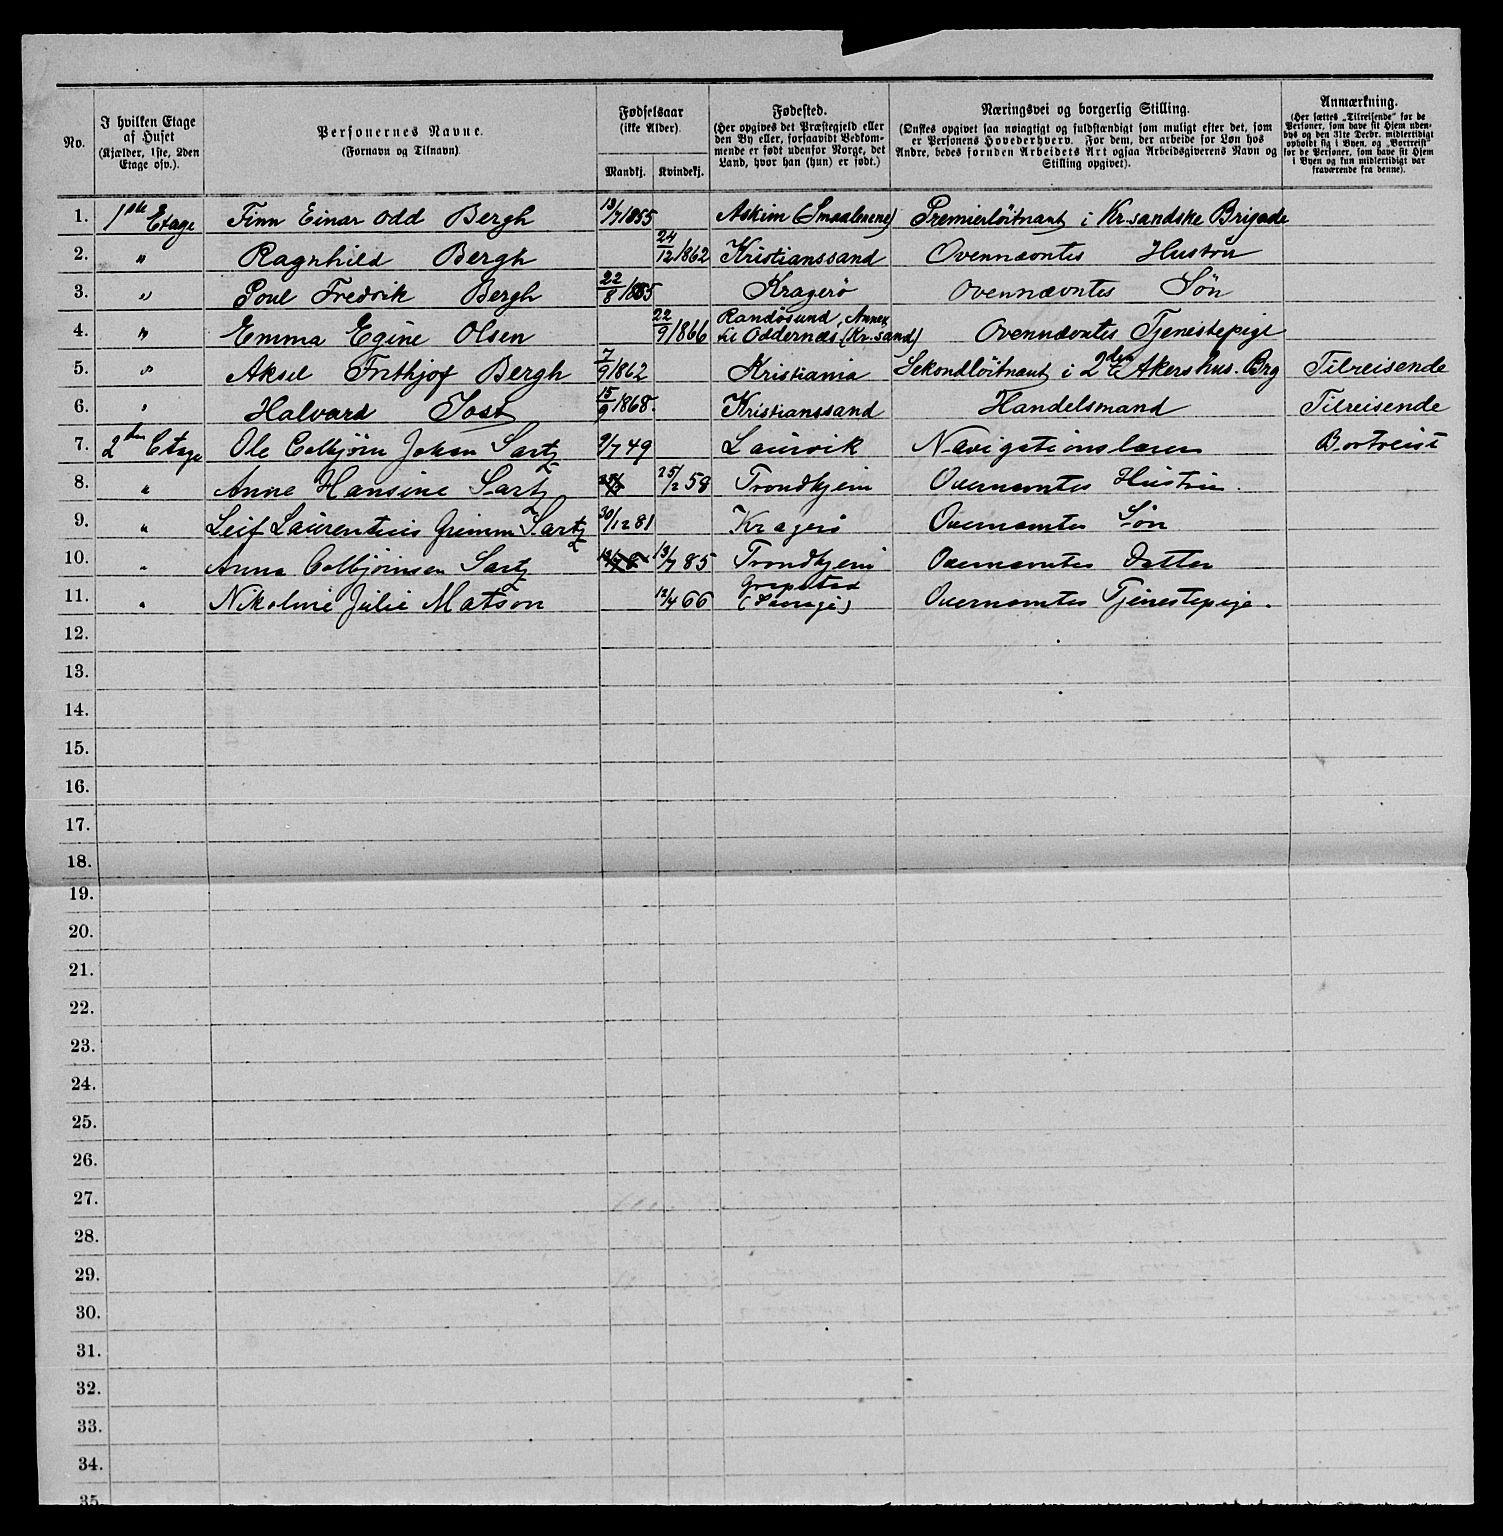 No.
I hvilken Etage af Huset (Kjælder, 1ste, 2den Etage osv.).
Personernes Navne. (Fornavn og Tilnavn).
Fødselsaar (ikke Alder).
Mandkj. Kvindekj.
Fødested. (Her opgives det Præstegjeld eller den By eller, forsaavidt Vedkommende er født udenfor Norge, det Land, hvor han (hun) er født.)
Næringsvei og borgerlig Stilling. (Ønskes opgivet saa nøiagtigt og fuldstændigt som muligt efter det, som er Personens Hovederhverv. For dem, der arbeide for Løn hos Andre, bedes foruden Arbeidets Art ogsaa Arbeidsgiverens Navn og Stilling opgivet).
Anmærkning. (Her sættes „Tilreisende" for de Personer, som have sit Hjem udenbys og den 31te Decbr. midlertidigt opholdt sig i Byen, og „Bortreist" for de Personer, som have sit Hjem i Byen og kun midlertidigt var fraværende fra denne).
1. 1ste Etage Finn Einar Odd Bergh 13/7 1855 Askim (Smaalenene) Premierløitnant i Kr.sandske Brigade
2. " Ragnhild Bergh 24/12 1862 Kristianssand Ovennævntes Hustru
3. " Poul Fredrik Bergh 22/8 1885 Kragerø Ovennævntes Søn
4. " Emma Egine Olsen 22/9 1866 Randøsund, Annex til Oddernæs (Kr.sand) Ovennævntes Tjenestepige
5. " Aksel Frithjof Bergh 7/9 1862 Kristiania Sekondløitnant i 2den Akershus. Brg Tilreisende
6. " Halvard Jost 15/9 1868. Kristianssand Handelsmand Tilreisende
7. 2den Etage Ole Colbjørn Johan Sartz 9/7 49 Laurvik Navigationslærer Bortreist
8. " Anne Hansine Sartz 25/2 58 Trondhjem Ovennævntes Hustru.
9. " Leif Laurentius Grimm Sartz 30/12 81 Kragerø Ovennævntes Søn
10. " Anna Colbjørnsen Sartz 13/7 85 Trondhjem Ovennævntes Datter
11. " Nikoline Julie Matson 12/4 66 Ovennævntes Tjenestepige.
12.
13.
14.
15.
16.
17.
18.
19.
20.
21.
22.
23.
24.
25.
26.
27.
28.
29.
30.
31.
32.
33.
34.
35.